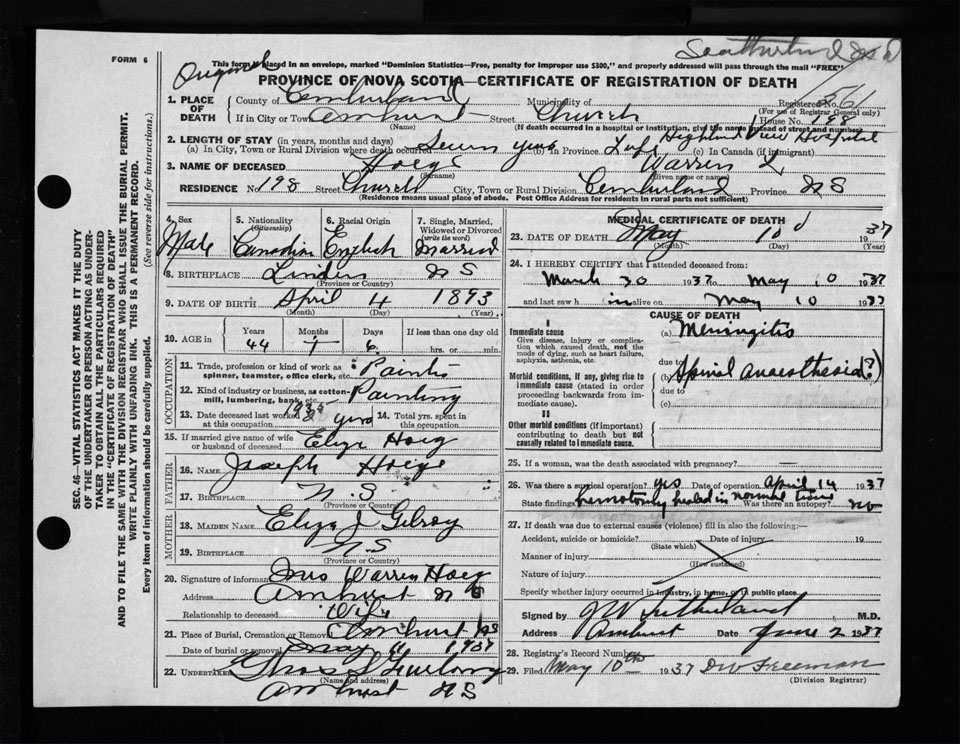 FORM 6
Original
This form placed in an envelope, marked "Dominion Statistics—Free, penalty for improper use $300," and properly addressed will pass through the mail "FREE"
PROVINCE OF NOVA SCOTIA—CERTIFICATE OF REGISTRATION OF DEATH
1. PLACE OF DEATH County of Cumberland Municipality of Registered No. 561
(For use of Registrar General only)
If in City or Town Amherst Street Church House No. 198
(Name) (If death occurred in a hospital or institution, give the name instead of street and number)
Highland View Hospital
2. LENGTH OF STAY (in years, months and days)
(a) In City, Town or Rural Division where death occurred Seven yrs (b) In Province Life (c) In Canada (if immigrant)
3. NAME OF DECEASED Hoeg Warren L
(Surname) (Given name or name)
RESIDENCE No. 198 Street Church City, Town or Rural Division Cumberland Province N S
(Residence means usual place of abode. Post Office Address for residents in rural parts not sufficient)
SEC. 46—VITAL STATISTICS ACT MAKES IT THE DUTY
OF THE UNDERTAKER OR PERSON ACTING AS UNDER-
TAKER TO OBTAIN ALL THE PARTICULARS REQUIRED
IN THE "CERTIFICATE OF REGISTRATION OF DEATH"
AND TO FILE THE SAME WITH THE DIVISION REGISTRAR WHO SHALL ISSUE THE BURIAL PERMIT.
WRITE PLAINLY WITH UNFADING INK. THIS IS A PERMANENT RECORD.
Every item of information should be carefully supplied. (See reverse side for instructions.)
4. Sex 5. Nationality (Citizenship) 6. Racial Origin 7. Single, Married, Widowed or Divorced (write the word)
Male Canadian English Married
8. BIRTHPLACE Linden N S
(Province or Country)
9. DATE OF BIRTH April 4 1893
(Month) (Day) (Year)
10. AGE in Years Months Days If less than one day old
44 1 6 hrs. or min.
OCCUPATION
11. Trade, profession or kind of work as spinner, teamster, office clerk, etc. Painter
12. Kind of industry or business, as cotton-mill, lumbering, bank, etc. Painting
13. Date deceased last worked at this occupation yrs 14. Total yrs. spent in this occupation
15. If married give name of wife or husband of deceased Eliza Hoeg
FATHER
16. NAME Joseph Hoeg
17. BIRTHPLACE N.S
(Province or Country)
MOTHER
18. MAIDEN NAME Eliza J Gilroy
19. BIRTHPLACE N.S
(Province or Country)
20. Signature of informant Mrs Warren Hoeg
Address Amherst N S
Relationship to deceased Wife
21. Place of Burial, Cremation or Removal Amherst NS
Date of burial or removal May 1937
22. UNDERTAKER
(Name and address)
Amherst N S
MEDICAL CERTIFICATE OF DEATH
23. DATE OF DEATH May 10 1937
(Month) (Day) (Year)
24. I HEREBY CERTIFY that I attended deceased from:
March 30 1937 to May 10 1937
and last saw him alive on May 10 1937
CAUSE OF DEATH
I
Immediate cause (a) Meningitis
Give disease, injury or complication which caused death, not the mode of dying, such as heart failure, asphyxia, asthenia, etc.
due to
Morbid conditions, if any, giving rise to immediate cause (stated in order proceeding backwards from immediate cause). (b) Spinal anaesthesia (?)
due to
(c)
II
Other morbid conditions (if important) contributing to death but not causally related to immediate cause.
25. If a woman, was the death associated with pregnancy?
26. Was there a surgical operation? yes Date of operation April 14 1937
State findings herniotomy healed in normal time Was there an autopsy? no
27. If death was due to external causes (violence) fill in also the following:—
Accident, suicide or homicide? Date of injury 19
(State which)
Manner of injury
(How sustained)
Nature of injury
Specify whether injury occurred in industry, in home, or in public place.
Signed by J W Sutherland M.D.
Address Amherst Date June 2 1937
28. Registrar's Record Number
29. Filed May 10th 1937 D W Freeman
(Division Registrar)